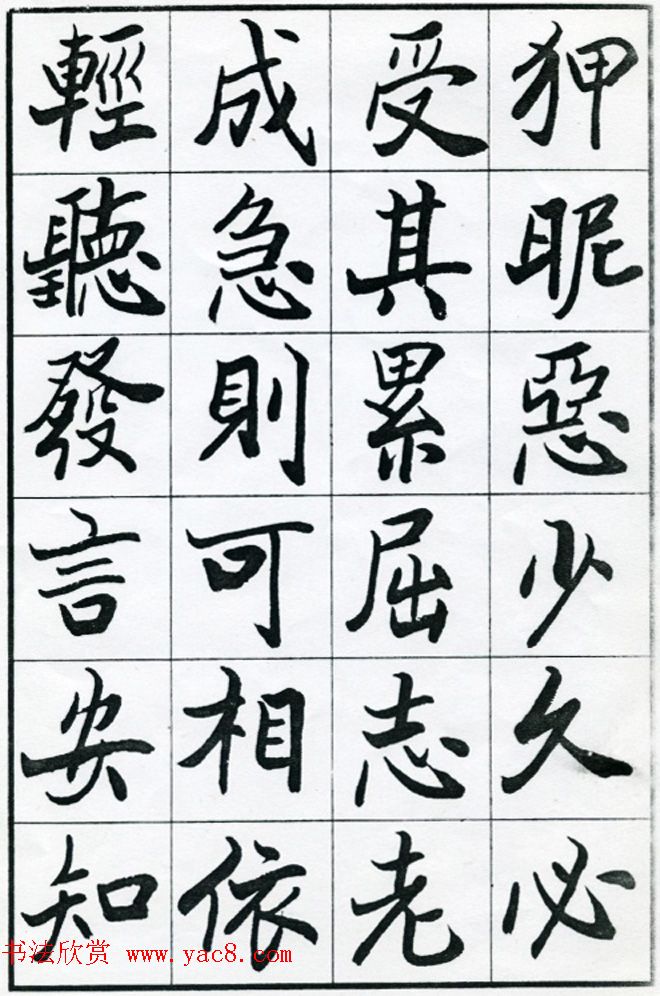 狎昵惡少久必
受其累屈志老
成急則可相依
輕聽發言安知
书法欣赏 www.yac8.com